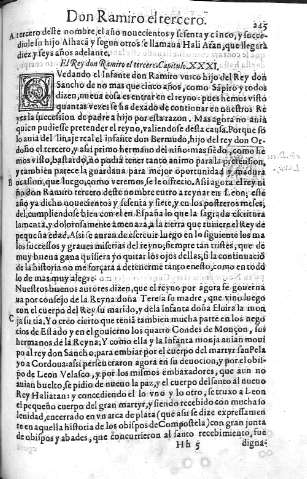 Don Ramiro el tercero.
245
A tercero deste nombre, el año nouecientos y sesenta y cinco, y suce
diole su hijo Alhacâ y segun otros se llamaua Hali Aʃan, que llegarâ
diez y seys años adelante.
El Rey don Ramiro el tercero. Capitulo. XXXI.
QVedando el Infante don Ramiro vnico hijo del Rey don
Sancho de no mas que cinco años, como Sãpiro y todos
dizen, nueua cosa es entrar en el reyno: pues hemos visto
quantas vezes se ha dexado de continuar en nuestros Re
yes la succession de padre a hijo por esta razon. Mas agora no auia
quien pudiesse pretender el reyno, valiendose dessa causa. Porque so
lo auia del linaje real el infante don Bermudo, hijo del rey don Or-
doño el tercero, y assi primo hermano del niño: mas este, como he
mos visto, bastardo, no podia tener tanto animo para la pretension,
y tambien parece la guardaua para mejor oportunidad y madura
B ocasion, que luego, como veremos, se le ofrecio. Assi agora el rey ni
ño don Ramiro tercero deste nombre entro a reynar en Leon, este
año ya dicho nouecientos y sesenta y siete, y en los postreros meses,
del, cumpliendose bien con el en España lo que la sagrada escritura
lamenta, y dolorosamente amenaza, a la tierra que tuuiere el Rey de
pequeña edad. Assi se auran de escreuir luego en lo siguiente los ma
los successos y graues miserias del reyno, siempre tan tristes, que de
muy buena gana quisiera yo quitar los ojos dellas, si la continuaciõ
de la historia no me forçara a detenerme tanto en esto, como en todo
lo de mas muy alegre.
Nuestros buenos autores dizen, que el reyno por agora se gouerna
ua por consejo de la Reyna doña Teresa su madre, que vino luego
con el cuerpo del Rey su marido, y dela infanta doña Eluira la mon
C ja su tia. Yo creo cierto que tenia tambien mucha parte en los nego
cios de Estado y en el gouierno los quatro Condes de Monçon, sus
hermanos de la Reyna: Y como ella y la infanta monja auian moui
do al rey don Sancho, para embiar por el cuerpo del martyr san Pela
yo a Cordoua: assi perseueraron agora en su deuocion, y por el obis-
po de Leon Velasco, y por los mismos embaxadores, que aun no
auian buelto, se pidio de nueuo la paz, y el cuerpo del santo al nueuo
Rey Haliatan: y concediendo el lo vno y lo otro, se truxo a Leon
el pequeño cuerpo del gran martyr, y siendo recebido con mucha so
lenidad, encerrado en vn arca de plata (que assi se dize expressamen
te en aquella historia de los obispos de Compostela) con gran junta
de obispos y abades, que concurrieron al santo recebimiento, fue
Hh 5
digna-